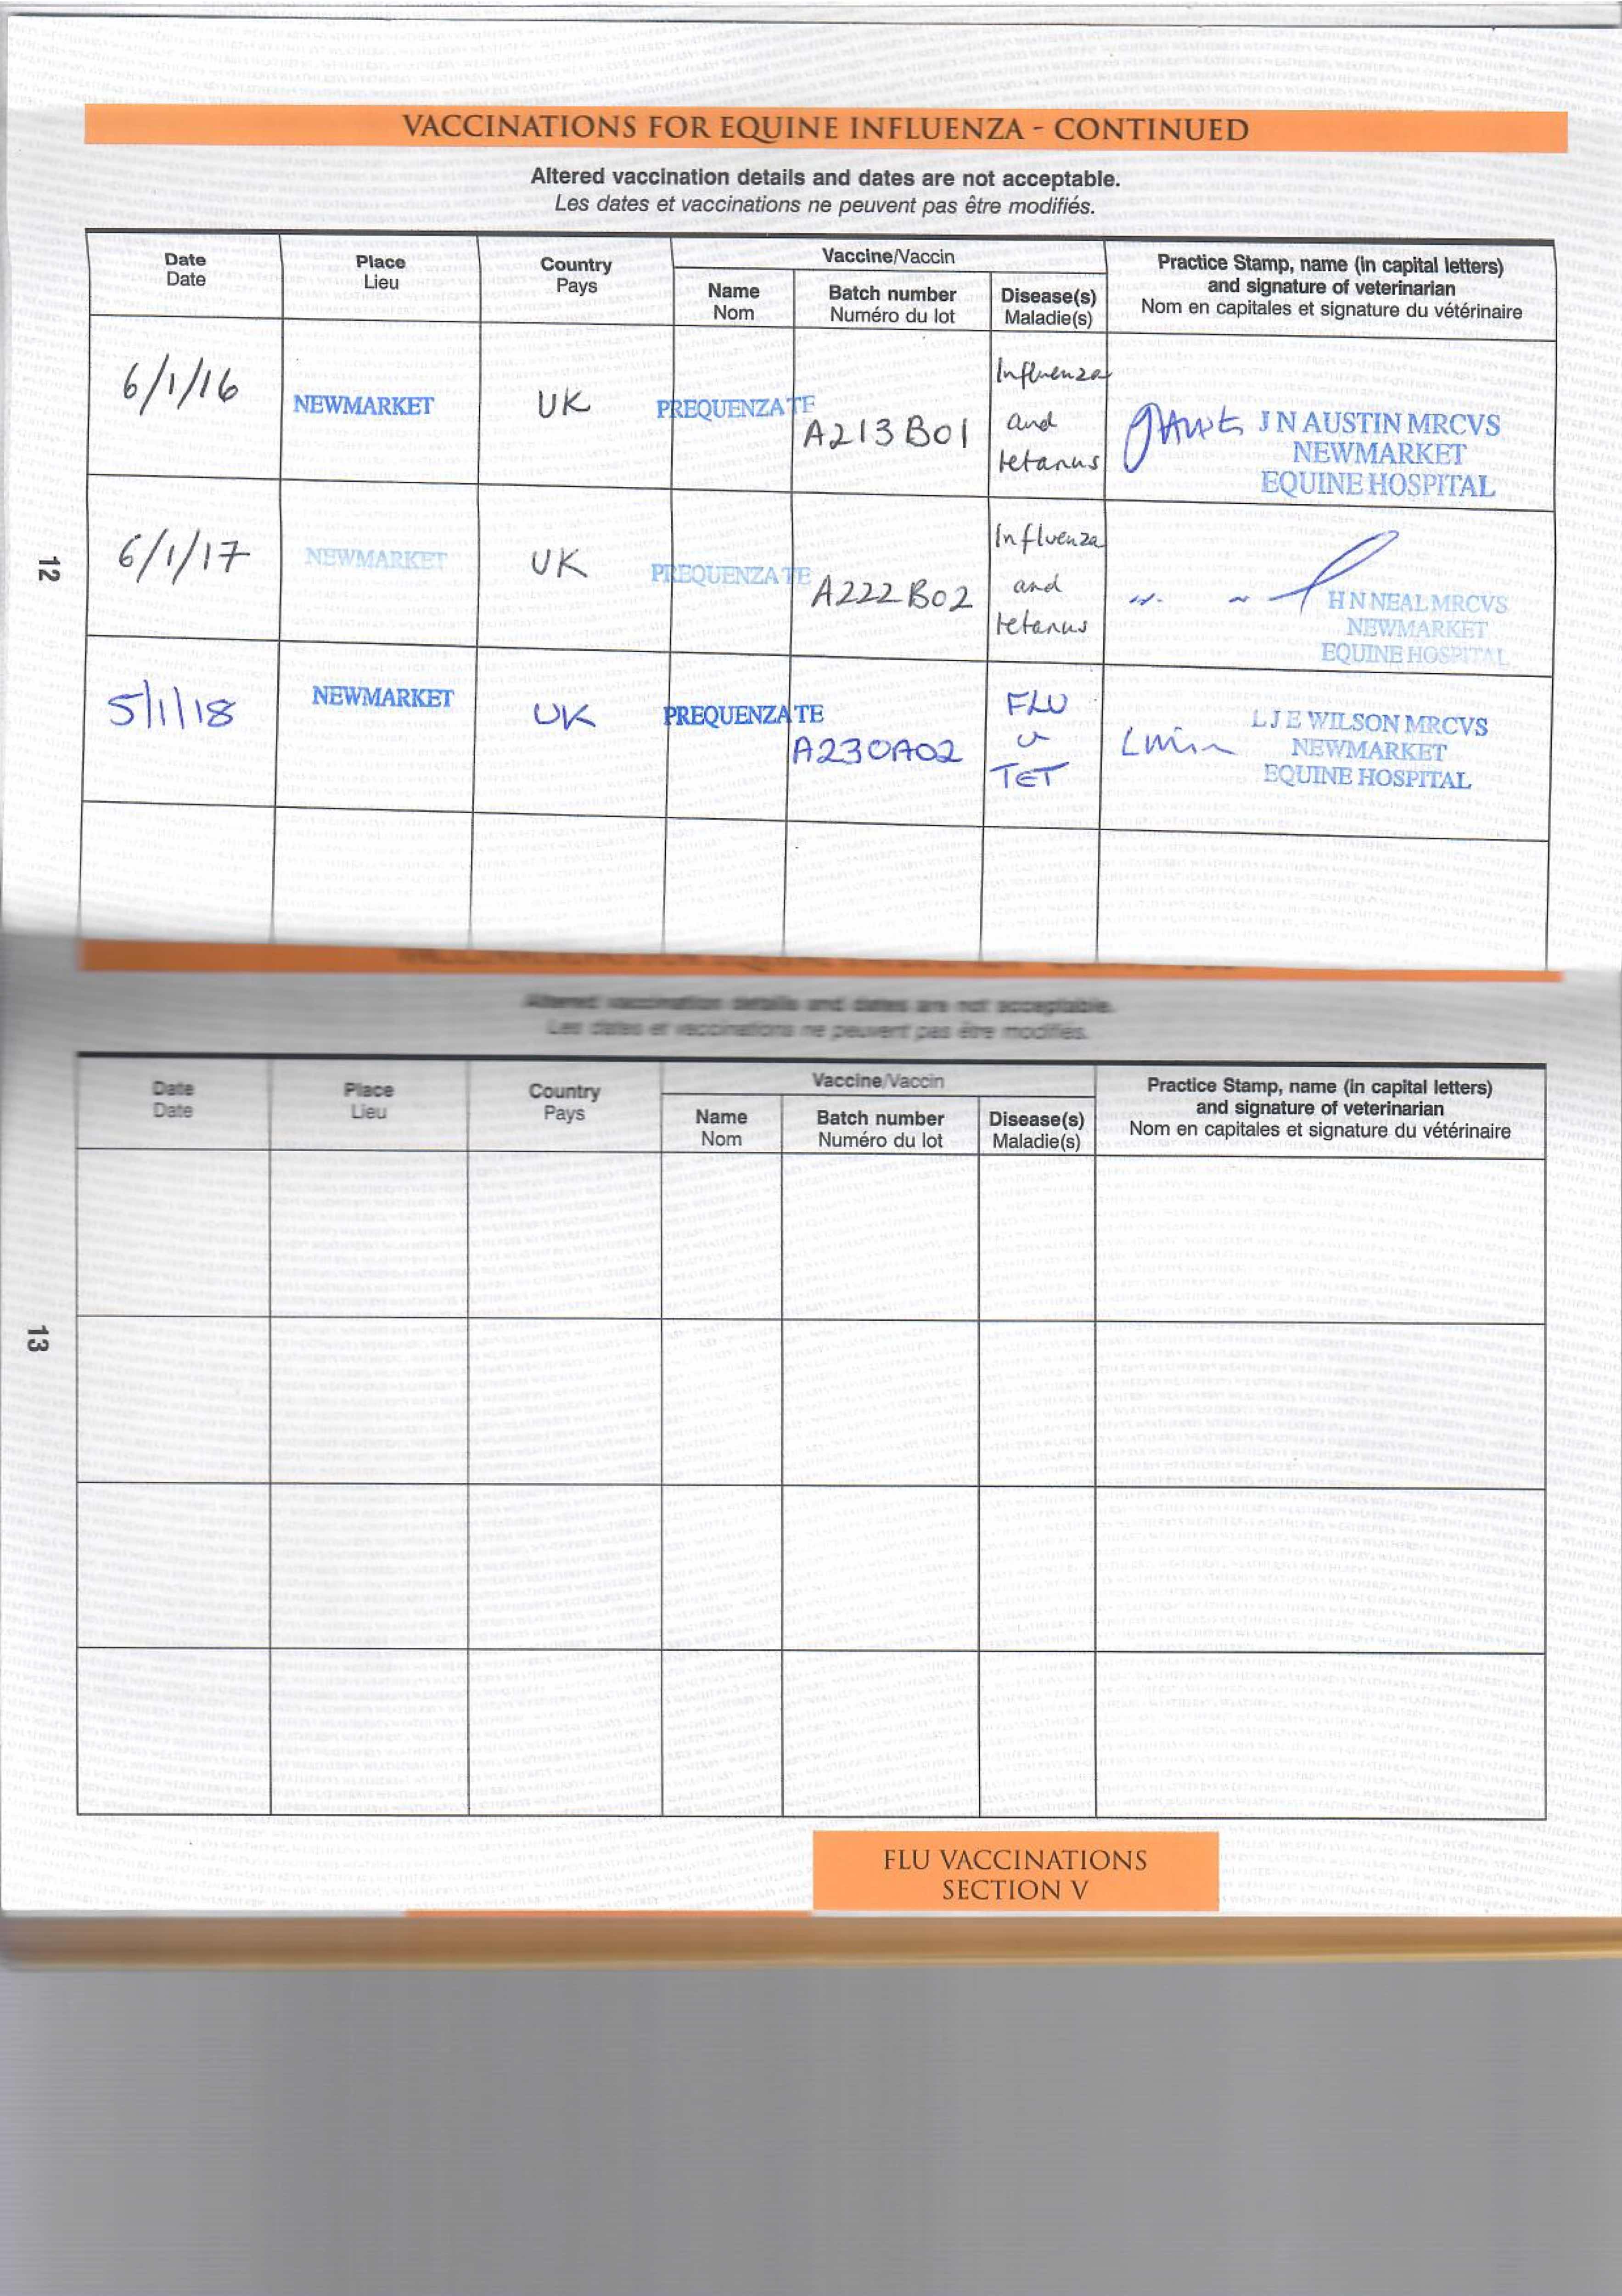 VACCINATIONS FOR EQUINE INFLUENZA - CONTINUED
Altered vaccination details and dates are not acceptable.
Les dates et vaccinations ne peuvent pas être modifiés.
Date
Date
Place
Lieu
Country
Pays
Vaccine/Vaccin
Name
Nom
Batch number
Numéro du lot
Disease(s)
Maladie(s)
Practice Stamp, name (in capital letters)
and signature of veterinarian
Nom en capitales et signature du vétérinaire
6/1/16
NEWMARKET
UK
PREQUENZA TE
A213B01
Influenza
and
tetanus
J N AUSTIN MRCVS
NEWMARKET
EQUINE HOSPITAL
12
6/1/17
NEWMARKET
UK
PREQUENZA TE
A222B02
Influenza
and
tetanus
H N NEAL MRCVS
NEWMARKET
EQUINE HOSPITAL
5/1/18
NEWMARKET
UK
PREQUENZA TE
A230A02
FLU
TET
L J E WILSON MRCVS
NEWMARKET
EQUINE HOSPITAL
Altered vaccination details and dates are not acceptable.
Les dates et vaccinations ne peuvent pas être modifiés.
Date
Date
Place
Lieu
Country
Pays
Vaccine/Vaccin
Name
Nom
Batch number
Numéro du lot
Disease(s)
Maladie(s)
Practice Stamp, name (in capital letters)
and signature of veterinarian
Nom en capitales et signature du vétérinaire
13
FLU VACCINATIONS
SECTION V